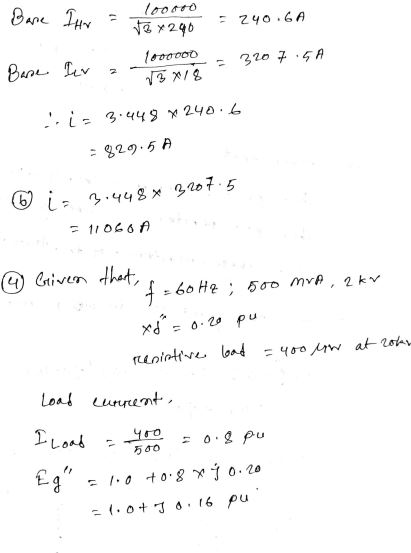 Base I_HV = 100000 / √3 × 240 = 240.6A
Base I_LV = 1000000 / √3 × 18 = 3207.5A
∴ i = 3.448 × 240.6
= 829.5 A
(b) i = 3.448 × 3207.5
= 11060A
(4) Given that, f = 60Hz ; 500 MVA, 2 kv
xd" = 0.20 pu
resistive load = 400 MW at 20kv
Load current,
I Load = 400 / 500 = 0.8 pu
Eg" = 1.0 + 0.8 × j 0.20
= 1.0 + j 0.16 pu